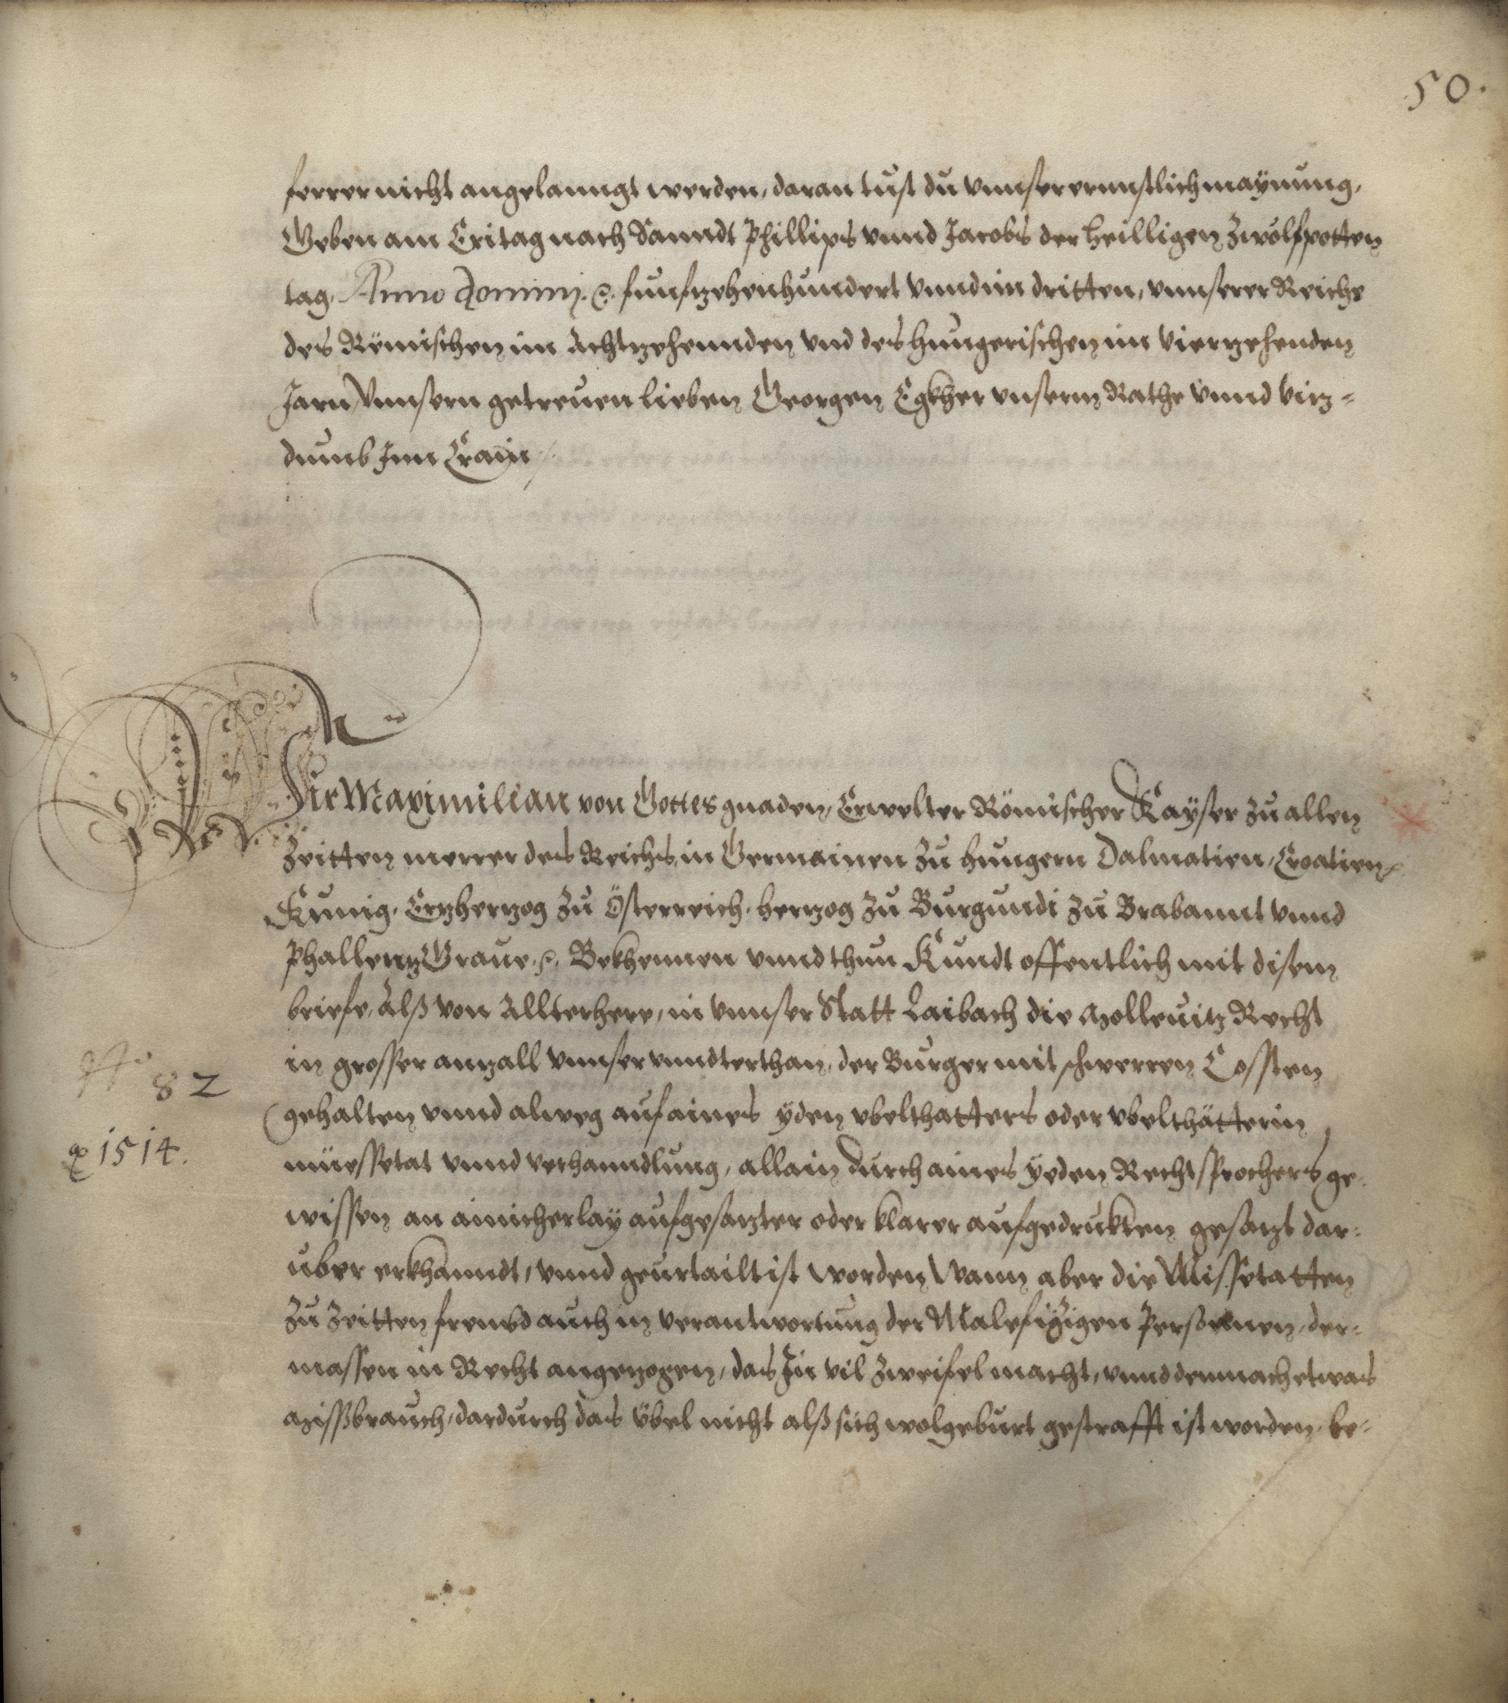 50.
ferrer nicht angelanngt werden, daran tust du vnnser ernnstlich maynung,
Geben am Eritag nach Sanndt Phillips vnnd Jacobs der heilligen zwölfpotten
tag, Anno domini. &. funfzehenhundert vnnd im dritten, vnnserer Reiche
des Römischen im Achtzehennden vnd des hungerischen im vierzehenden
Jarn Vnnsern getreuen lieben Georgen Egkher vnserm Rathe vnnd vitz=
dumb Inn Crain
Wir Maximilian von Gottes gnaden, Erwelter Römischer Kayser zu allen
Zeitten merrer des Reichs, in Germainen zu hungern Dalmatien, Croatien &
Kunig. Erzherzog zu Österreich. herzog zu Burgundi zu Brabannt vnnd
Phallenz Graue. &. Bekhennen vnnd thun Kundt offentlich mit disem
briefe, Alß von Allterhere, in vnnser Statt Laibach die Malleuitz Recht
in grosser anzall vnnser vnndterthan, der Burger mit schwerren Cossten
gehalten vnnd alweg auf aines yden vbelthatters oder vbelthätterin
müessetat vnnd verhanndlung, allain durch aines yeden Rechtsprechers ge=
wissen an ainicherlay aufgesazter oder klarer aufgedrukten gesazt dar=
uber erkhanndt, vnnd geurtailt ist worden Wann aber die Missetatten
zu zeitten frembd auch in verantwortung der Malefizigen Persenen, der=
massen in Recht angezogen, das Jir vil zweifel macht, vnnd demnach etwas
missbrauch, dardurch das übel nicht alß sich wolgeburt gestrafft ist worden. be=
No. 82
1514.